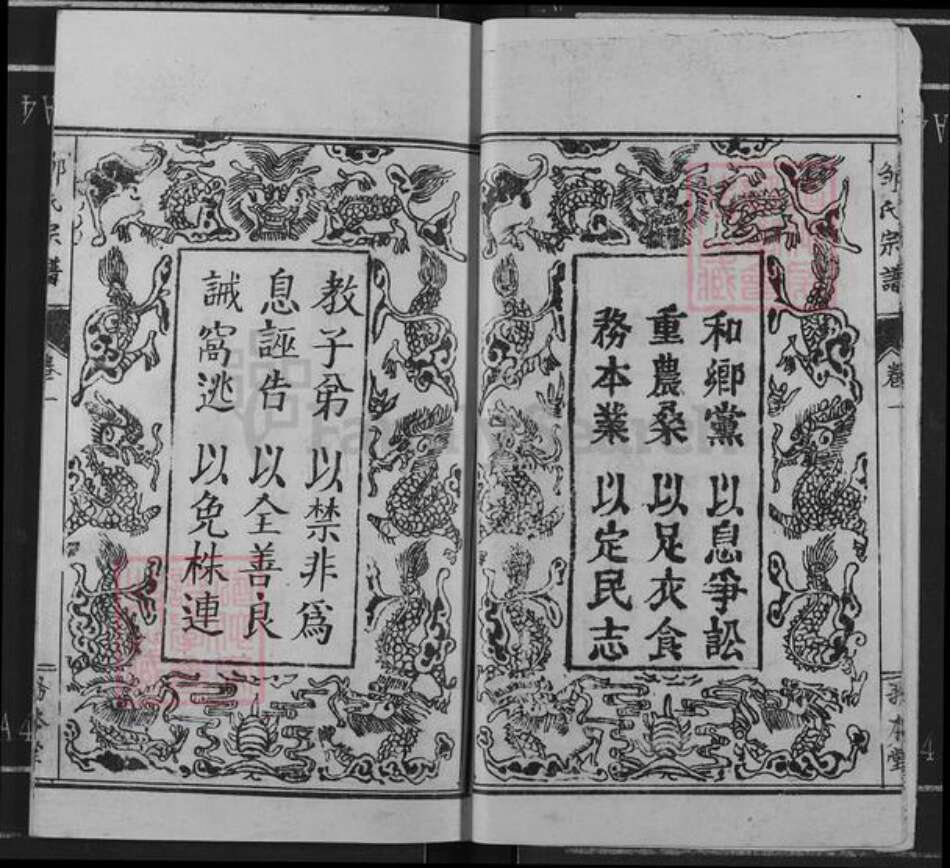 鄒氏宗譜
卷一
和鄉黨 以息爭訟
重農桑 以足衣食
務本業 以定民志
教子弟 以禁非為
息誣告 以全善良
誡窩逃 以免株連
氏宗譜
卷一